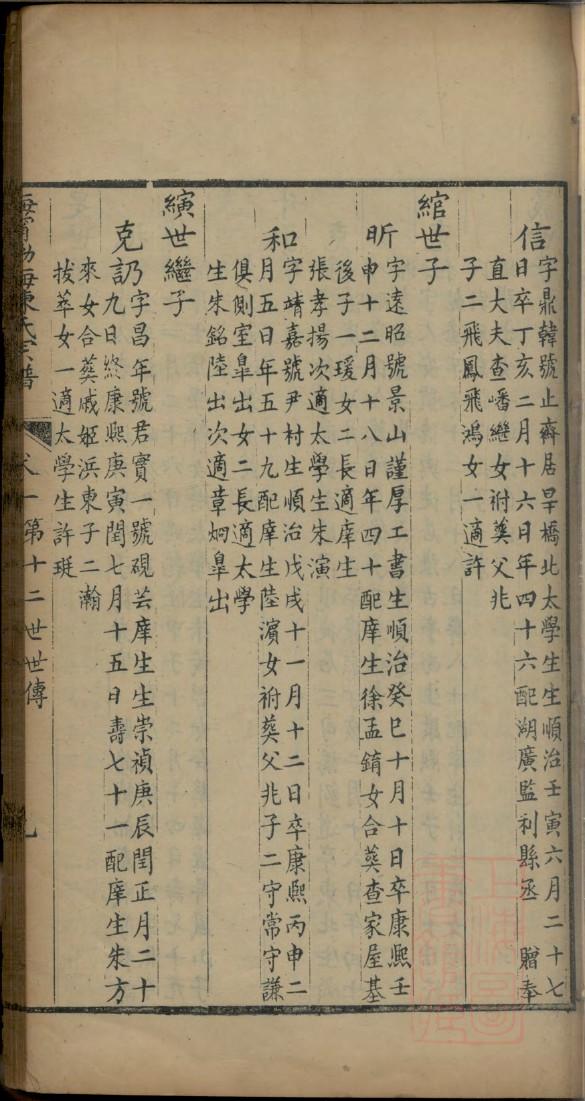 信字鼎韓號止齋居旱橋北太學生生順治壬寅六月二十七
日卒丁亥二月十六日年四十六配湖廣監利縣丞 贈奉
直大夫查嶓繼女祔葬父兆
子二飛鳳飛鴻女一適許
綰世子
昕字遠昭號景山謹厚工書生順治癸巳十月十日卒康熙壬
申十二月十八日年四十配庠生徐孟錥女合葬查家屋基
後子一瑗女二長適庠生
張孝揚次適太學生朱演
和字靖嘉號尹村生順治戊戌十一月十二日卒康熙丙申二
月五日年五十九配庠生陸濵女祔葬父兆子二守常守謙
俱側室臯出女二長適太學
生朱銘陸出次適章炯臯出
縯世繼子
克訒字昌年號君實一號硯芸庠生生崇禎庚辰閏正月二十
九日終康熙庚寅閏七月十五日壽七十一配庠生朱方
來女合葬戚姬浜東子二瀚
拔萃女一適太學生許珽
海寧渤海陳氏宗譜 第十二世世傳 九